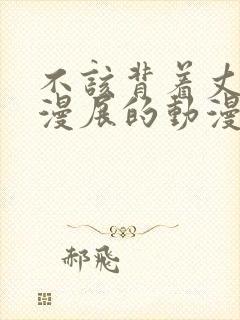 不該背着丈
漫展的動漫
郝飛